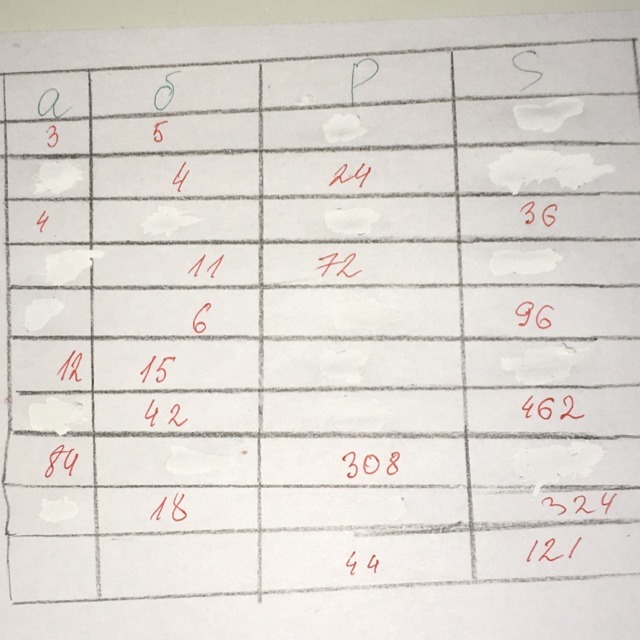 а б P S
3 5
4 24
4 36
11 72
6 96
12 15
42 462
84 308
18 324
44 121